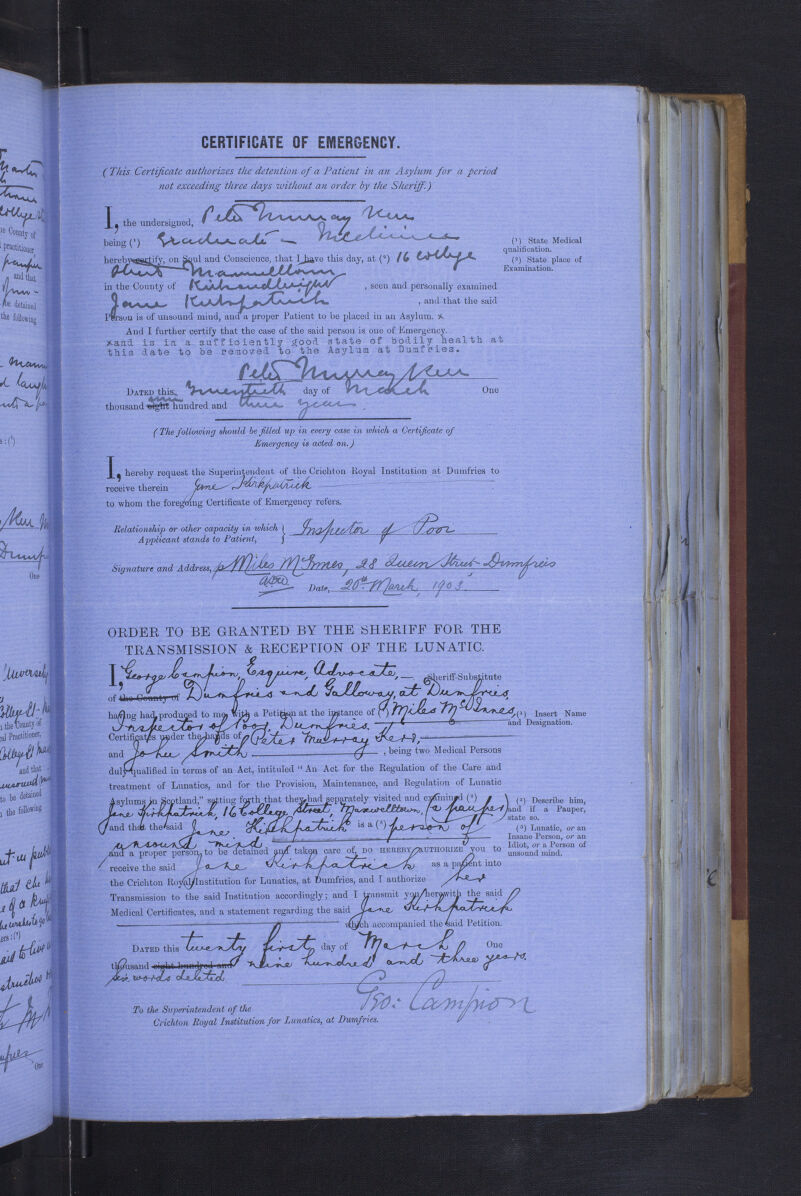 CERTIFICATE OF EMERGENCY.
(This Certificate authorizes the detention of a Patient in an Asylum for a period
not exceeding three days without an order by the Sheriff.)
I, the undersigned, Peter Murray Kerr
being (¹) Graduate in Medicine
(¹) State Medical
qualification.
hereby certify, on Soul and Conscience, that I have this day, at (²) 16 College
(²) State place of
Examination.
Street Maxwelltown
in the County of Kirkcudbright, seen and personally examined
Jane Kirkpatrick, and that the said
Person is of unsound mind, and a proper Patient to be placed in an Asylum. x
And I further certify that the case of the said person is one of Emergency.
xand is in a sufficiently good state of bodily health at
this date to be removed to the Asylum at Dumfries.
Peter Murray Kerr
DATED this twentieth day of March One
nine
thousand eight hundred and three years
(The following should be filled up in every case in which a Certificate of
Emergency is acted on.)
I, hereby request the Superintendent of the Crichton Royal Institution at Dumfries to
receive therein Jane Kirkpatrick
to whom the foregoing Certificate of Emergency refers.
Relationship or other capacity in which
Applicant stands to Patient, } Inspector of Poor
Signature and Address, p Miles McInnes, 28 Queen Street Dumfries
Date, 20th March, 1903.
ORDER TO BE GRANTED BY THE SHERIFF FOR THE
TRANSMISSION & RECEPTION OF THE LUNATIC.
I, George Campion, Esquire, Advocate, Sheriff-Substitute
of the County of Dumfries and Galloway, at Dumfries,
having had produced to me with a Petition at the instance of (¹) Miles McInnes,
(¹) Insert Name
and Designation.
Inspector of Poor, Dumfries.
Certificates under the hands of Peter Murray Kerr,
and John Smith, being two Medical Persons
duly qualified in terms of an Act, intituled "An Act for the Regulation of the Care and
treatment of Lunatics, and for the Provision, Maintenance, and Regulation of Lunatic
Asylums in Scotland," setting forth that they had separately visited and examined (²)
(²) Describe him,
and if a Pauper,
state so.
Jane Kirkpatrick, 16 College Street, Maxwelltown, (a pauper)
and that the said Jane Kirkpatrick is a (³) person of
(³) Lunatic, or an
Insane Person, or an
Idiot, or a Person of
unsound mind.
unsound mind
and a proper person to be detained and taken care of, DO HEREBY AUTHORIZE you to
receive the said Jane Kirkpatrick as a patient into
the Crichton Royal Institution for Lunatics, at Dumfries, and I authorize her
Transmission to the said Institution accordingly; and I transmit you herewith the said
Medical Certificates, and a statement regarding the said Jane Kirkpatrick
which accompanied the said Petition.
DATED this twenty first day of March One
thousand eight hundred and nine hundred and three years.
Six words deleted
Geo: Campion
To the Superintendent of the
Crichton Royal Institution for Lunatics, at Dumfries.